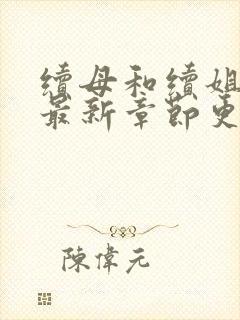 續母和續姐
最新章節更
陳偉元